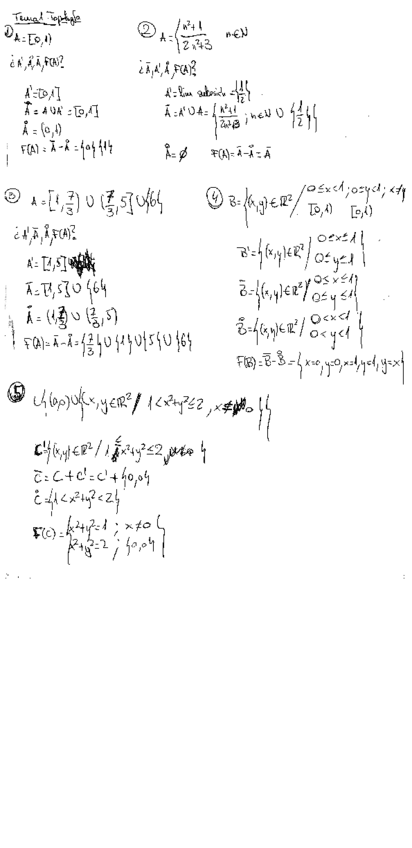 Tema 1 Topología
1) A=[0,1)
¿A', Å, Ā, F(A)?
A'=[0,1]
Ā = A∪A' = [0,1]
Å = (0,1)
F(A)=Ā-Å={0}{1}
2 A={n²+1 / 2n²+3 n∈N
¿Ā, A', Å, F(A)?
A'= lim = {1/2}
Ā = A'∪A = { n²+1 / 2n²+3 ; n∈N ∪ {1/2}}
Å=∅ F(A)=Ā-Å=Ā
3 A=[1,7/3) ∪ (7/3,5]∪{6}
¿A', Ā, Å, F(A)?
A'=[1,5]
Ā=[1,5]∪{6}
Å=(1,7/3)∪(7/3,5)
F(A)=Ā-Å={7/3}∪{1}∪{5}∪{6}
4 B={(x,y)∈R² / 0≤x<1; 0≤y<1; x≠y
[0,1) [0,1)
B'={(x,y)∈R² / 0≤x≤1 0≤y≤1}
B̄={(x,y)∈R² / 0≤x≤1 0≤y≤1}
B̊={(x,y)∈R² / 0<x<1 0<y<1}
F(B)=B̄-B̊={x=0, y=0, x=1, y=1, y=x}
5 {(0,0)∪{(x,y∈R² / 1<x²+y²≤2, x≠0}}
C'={(x,y)∈R² / 1≤x²+y²≤2 }
C̄=C+C'=C'+{0,0}
C̊={1<x²+y²<2}
F(C)={x²+y²=1 ; x≠0
x²+y²=2 ; {0,0}